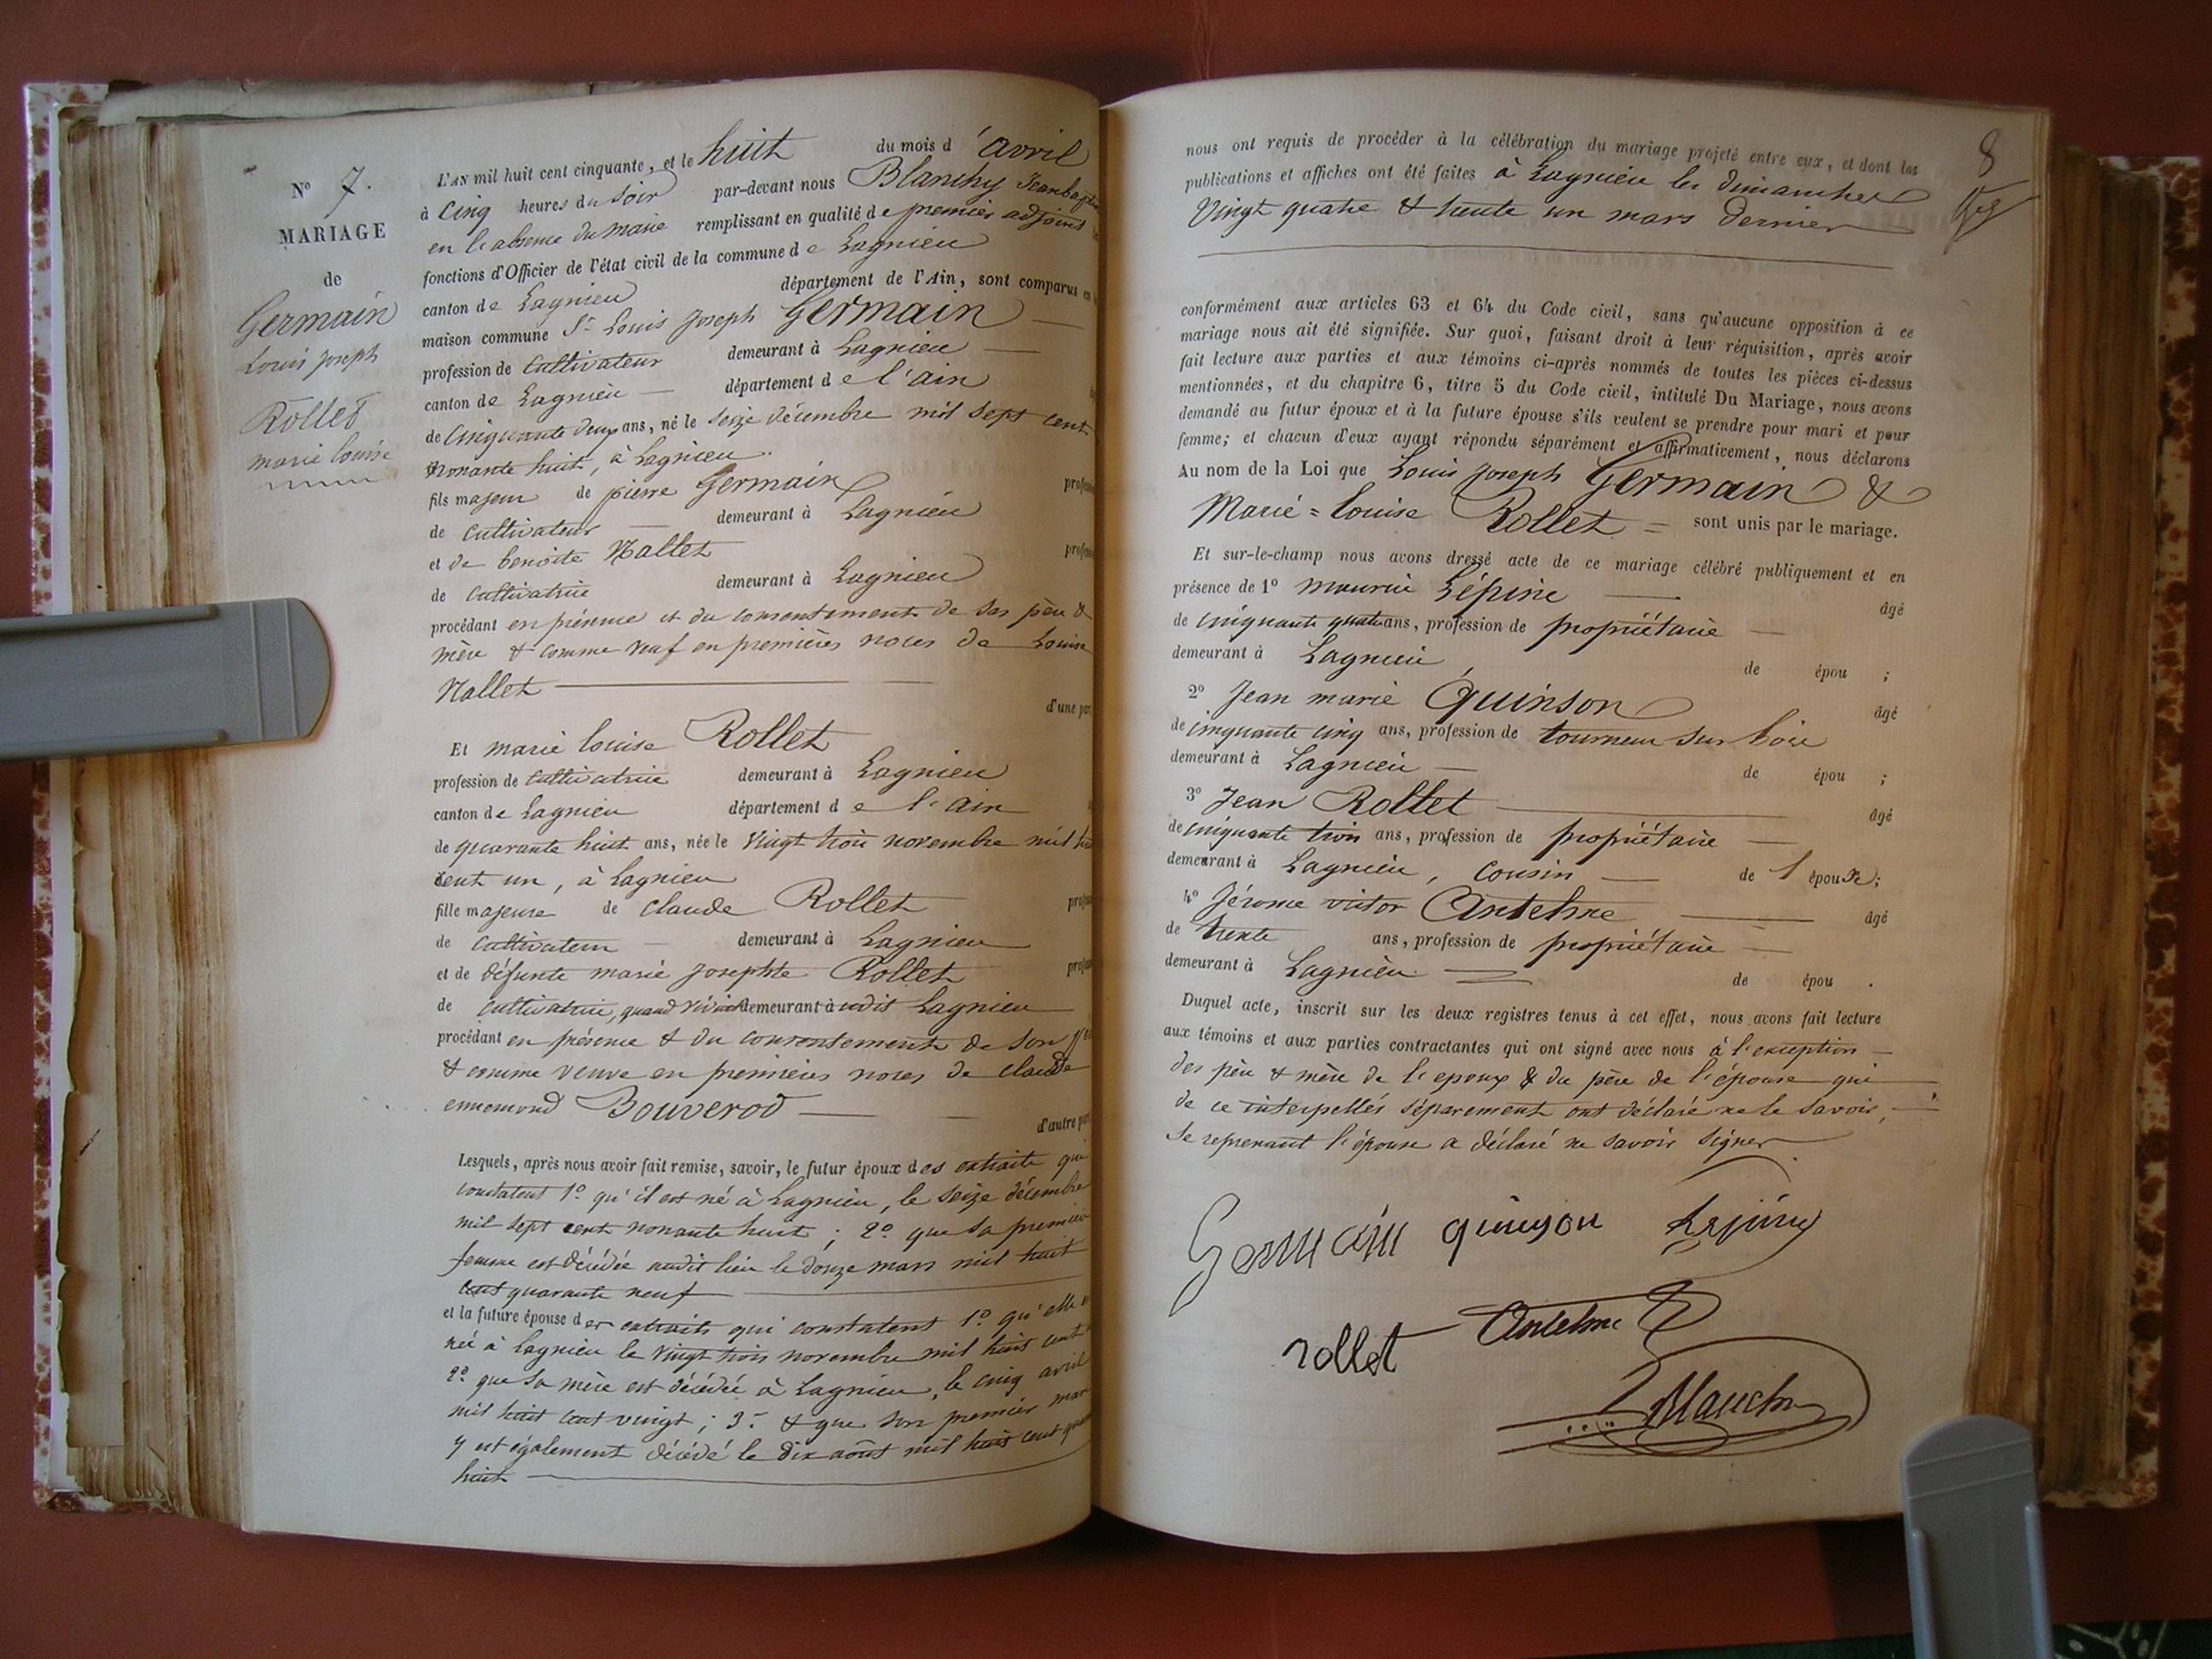 N° 7.
MARIAGE
de
Germain
Louis joseph
Rollet
marie louise
L'AN mil huit cent cinquante, et le huit du mois d'avril
à cinq heures du soir par-devant nous Blanchy Jeanbaptiste
en l'absence du maire remplissant en qualité de premier adjoint les
fonctions d'Officier de l'état civil de la commune de Lagnieu
canton de Lagnieu département de l'Ain, sont comparus en la
maison commune Sr Louis Joseph Germain
profession de cultivateur demeurant à Lagnieu
canton de Lagnieu département de l'ain
de cinquante deux ans, né le seize décembre mil sept cent
nonante huit, à Lagnieu.
fils majeur de pierre Germain profession
de cultivateur demeurant à Lagnieu
et de benoite Nallet profession
de cultivatrice demeurant à Lagnieu
procédant en présence et du consentement de ses père &
mère & comme veuf en premières noces de Louise
Nallet
d'une part
Et marie louise Rollet
profession de cultivatrice demeurant à Lagnieu
canton de Lagnieu département de l'ain
de quarante huit ans, née le vingt trois novembre mil huit
cent un, à Lagnieu
fille majeure de claude Rollet profession
de cultivateur demeurant à Lagnieu
et de défunte marie josephte Rollet profession
de cultivatrice, quand vivait demeurant à udit Lagnieu
procédant en présence & du consentement de son père
& comme veuve en premières noces de claude
ennemond Bouverod
d'autre part
Lesquels, après nous avoir fait remise, savoir, le futur époux des extraits qui
constatent 1° qu'il est né à Lagnieu, le seize décembre
mil sept cent nonante huit ; 2° que sa première
femme est décédée audit lieu le douze mars mil huit
cent quarante neuf
et la future épouse des extraits qui constatent 1° qu'elle est
née à Lagnieu le vingt trois novembre mil huit cent
2° que sa mère est décédée à Lagnieu, le cinq avril
mil huit cent vingt ; 3° & que son premier mari
y est également décédé le dix août mil huit cent quarante
huit
8
nous ont requis de procéder à la célébration du mariage projeté entre eux, et dont les
publications et affiches ont été faites à Lagnieu les dimanches
vingt quatre & trente un mars dernier
conformément aux articles 63 et 64 du Code civil, sans qu'aucune opposition à ce
mariage nous ait été signifiée. Sur quoi, faisant droit à leur réquisition, après avoir
fait lecture aux parties et aux témoins ci-après nommés de toutes les pièces ci-dessus
mentionnées, et du chapitre 6, titre 5 du Code civil, intitulé Du Mariage, nous avons
demandé au futur époux et à la future épouse s'ils veulent se prendre pour mari et pour
femme; et chacun d'eux ayant répondu séparément et affirmativement, nous déclarons
Au nom de la Loi que Louis Joseph Germain &
Marie=Louise Rollet = sont unis par le mariage.
Et sur-le-champ nous avons dressé acte de ce mariage célébré publiquement et en
présence de 1° maurice Lépine âgé
de cinquante quatre ans, profession de propriétaire
demeurant à Lagnieu, de épou ;
2° Jean marie Quinson âgé
de cinquante cinq ans, profession de tourneur sur bois
demeurant à Lagnieu de épou ;
3° Jean Rollet âgé
de cinquante trois ans, profession de propriétaire
demeurant à Lagnieu, cousin de l'épouse;
4° Jérome victor Antelme âgé
de trente ans, profession de propriétaire
demeurant à Lagnieu de épou .
Duquel acte, inscrit sur les deux registres tenus à cet effet, nous avons fait lecture
aux témoins et aux parties contractantes qui ont signé avec nous à l'exception
des père & mère de l'epoux & du père de l'épouse qui
de ce interpellés séparement ont déclaré ne le savoir,
se reprenant l'épouse a déclaré ne savoir signer
Germain quinson Lépine
rollet Antelme
Blanchy